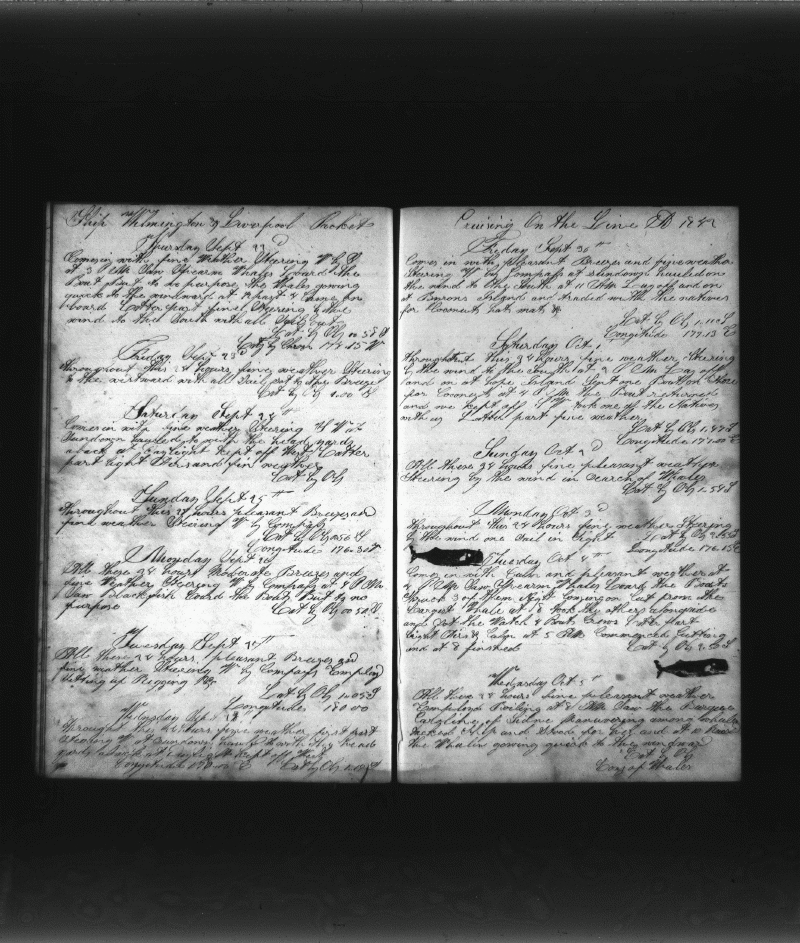 Ship Wilmington & Liverpool Packet
Thursday Sept 22d
Comes in with fine Weather Steering W by S
at 3 PM Saw Spearm Whales Loard the
Boat But to no purpose the Whales gowing
quick to the windward at
board Latter part fine Steering by the
wind to the South with all Sail out
Lat by Ob 0.58 S
Long by Chron 178 15 W
Friday Sept 23d
Throughout this 24 hours fine weather Steering
to the westward with all Sail out to the Breeze
Lat by Ob 1.00 S
Saturday Sept 24th
Comes in with fine weather Steering W
Sundown hauled to with the head yards
aback at daylight kept off West Latter
part light Airs and fine weather
Lat by Ob
Sunday Sept 25th
Throughout this 24 hours pleasant Breezes and
fine weather Steering W by Compass
Lat by Ob 0.56 S
Longitude 176.30
Monday Sept 26
All these 24 hours Moderate Breezes and
fine Weather Steering W by Compass at PM
Saw Blackfish Loard the Boats But to no
purpose Lat by Ob 00 50 S
Tuesday Sept 27th
All these 24 hours pleasant Breezes and
fine weather Steering W by Compass Employed
Setting up Rigging &c
Lat by Ob 1.05 S
Longitude 180.00
Wednesday Sept 28
Throughout this 24 hours fine weather first part
Steering W at Sundown hauld to with the head
yards aback at daylight kept off West
Longitude Lat by Ob
Cruising On the Line AD 1842
Friday Sept 30th
Comes in with pleasant Breezes and fine weather
Steering W by Compass at Sundown hauled on
the wind to the South at 11 AM Lay off and on
at Byrons Island and traded with the natives
for Coconuts hats mats &c
Lat by Ob 1.11 S
Longitude 177.13 E
Saturday Oct 1
Throughout this 24 hours fine weather Steering
by the wind to the South at 2 PM Lay off
and on at Hope Island Sent one Boat on Shore
for Coconuts at 4 PM the Boat returned
and we kept off took one of the Natives
with us Latter part fine weather
Lat by Ob 1.47 S
Longitude 177.00 E
Sunday Oct 2d
All these 24 hours fine pleasant weather
Steering by the wind in Search of Whales
Lat by Ob 1.58 S
Monday Oct 3d
Throughout this 24 hours fine weather Steering
by the wind one Sail in Sight Lat by Ob
Longitude 176.15 E
Tuesday Oct 4th
Comes in with Calm and pleasant weather at
PM Saw Spearm Whales Loard the Boats
Struck 3 of them Night Comeing on Cut from the
Largest Whale at 8 took the others alongside
and Set the Watch 4 Boats Crews Latter part
Light Airs & Calm at 5 AM Commenced Cutting
and at 8 finished Lat by Ob
Wednesday Oct 5th
All these 24 hours fine pleasent weather
Employed Boiling at 8 AM Saw the Barque
of Sidne manuvering among whales
tacked Ship and Stood for her and at 10 Loard
the Whales gowing quick to the windward
Lat by Ob
Whales